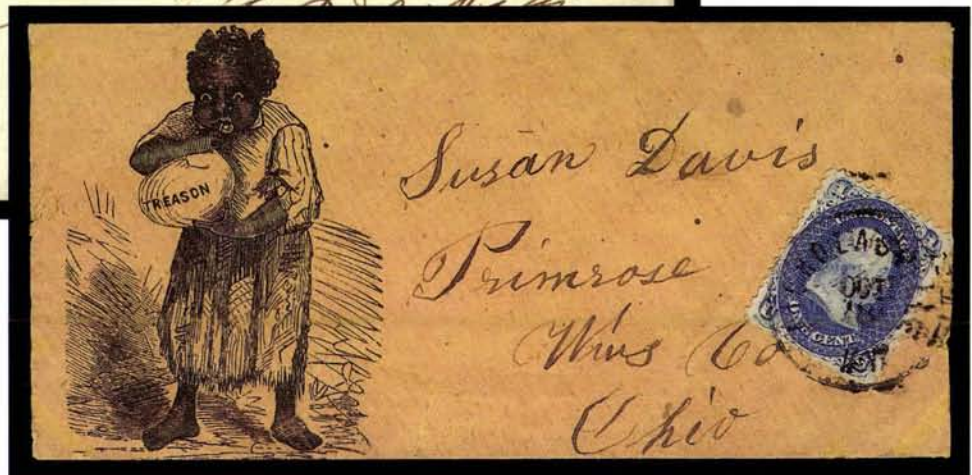 TREASON
Susan Davis
Primrose
Wms Co
Ohio
OCT
ONE CENT